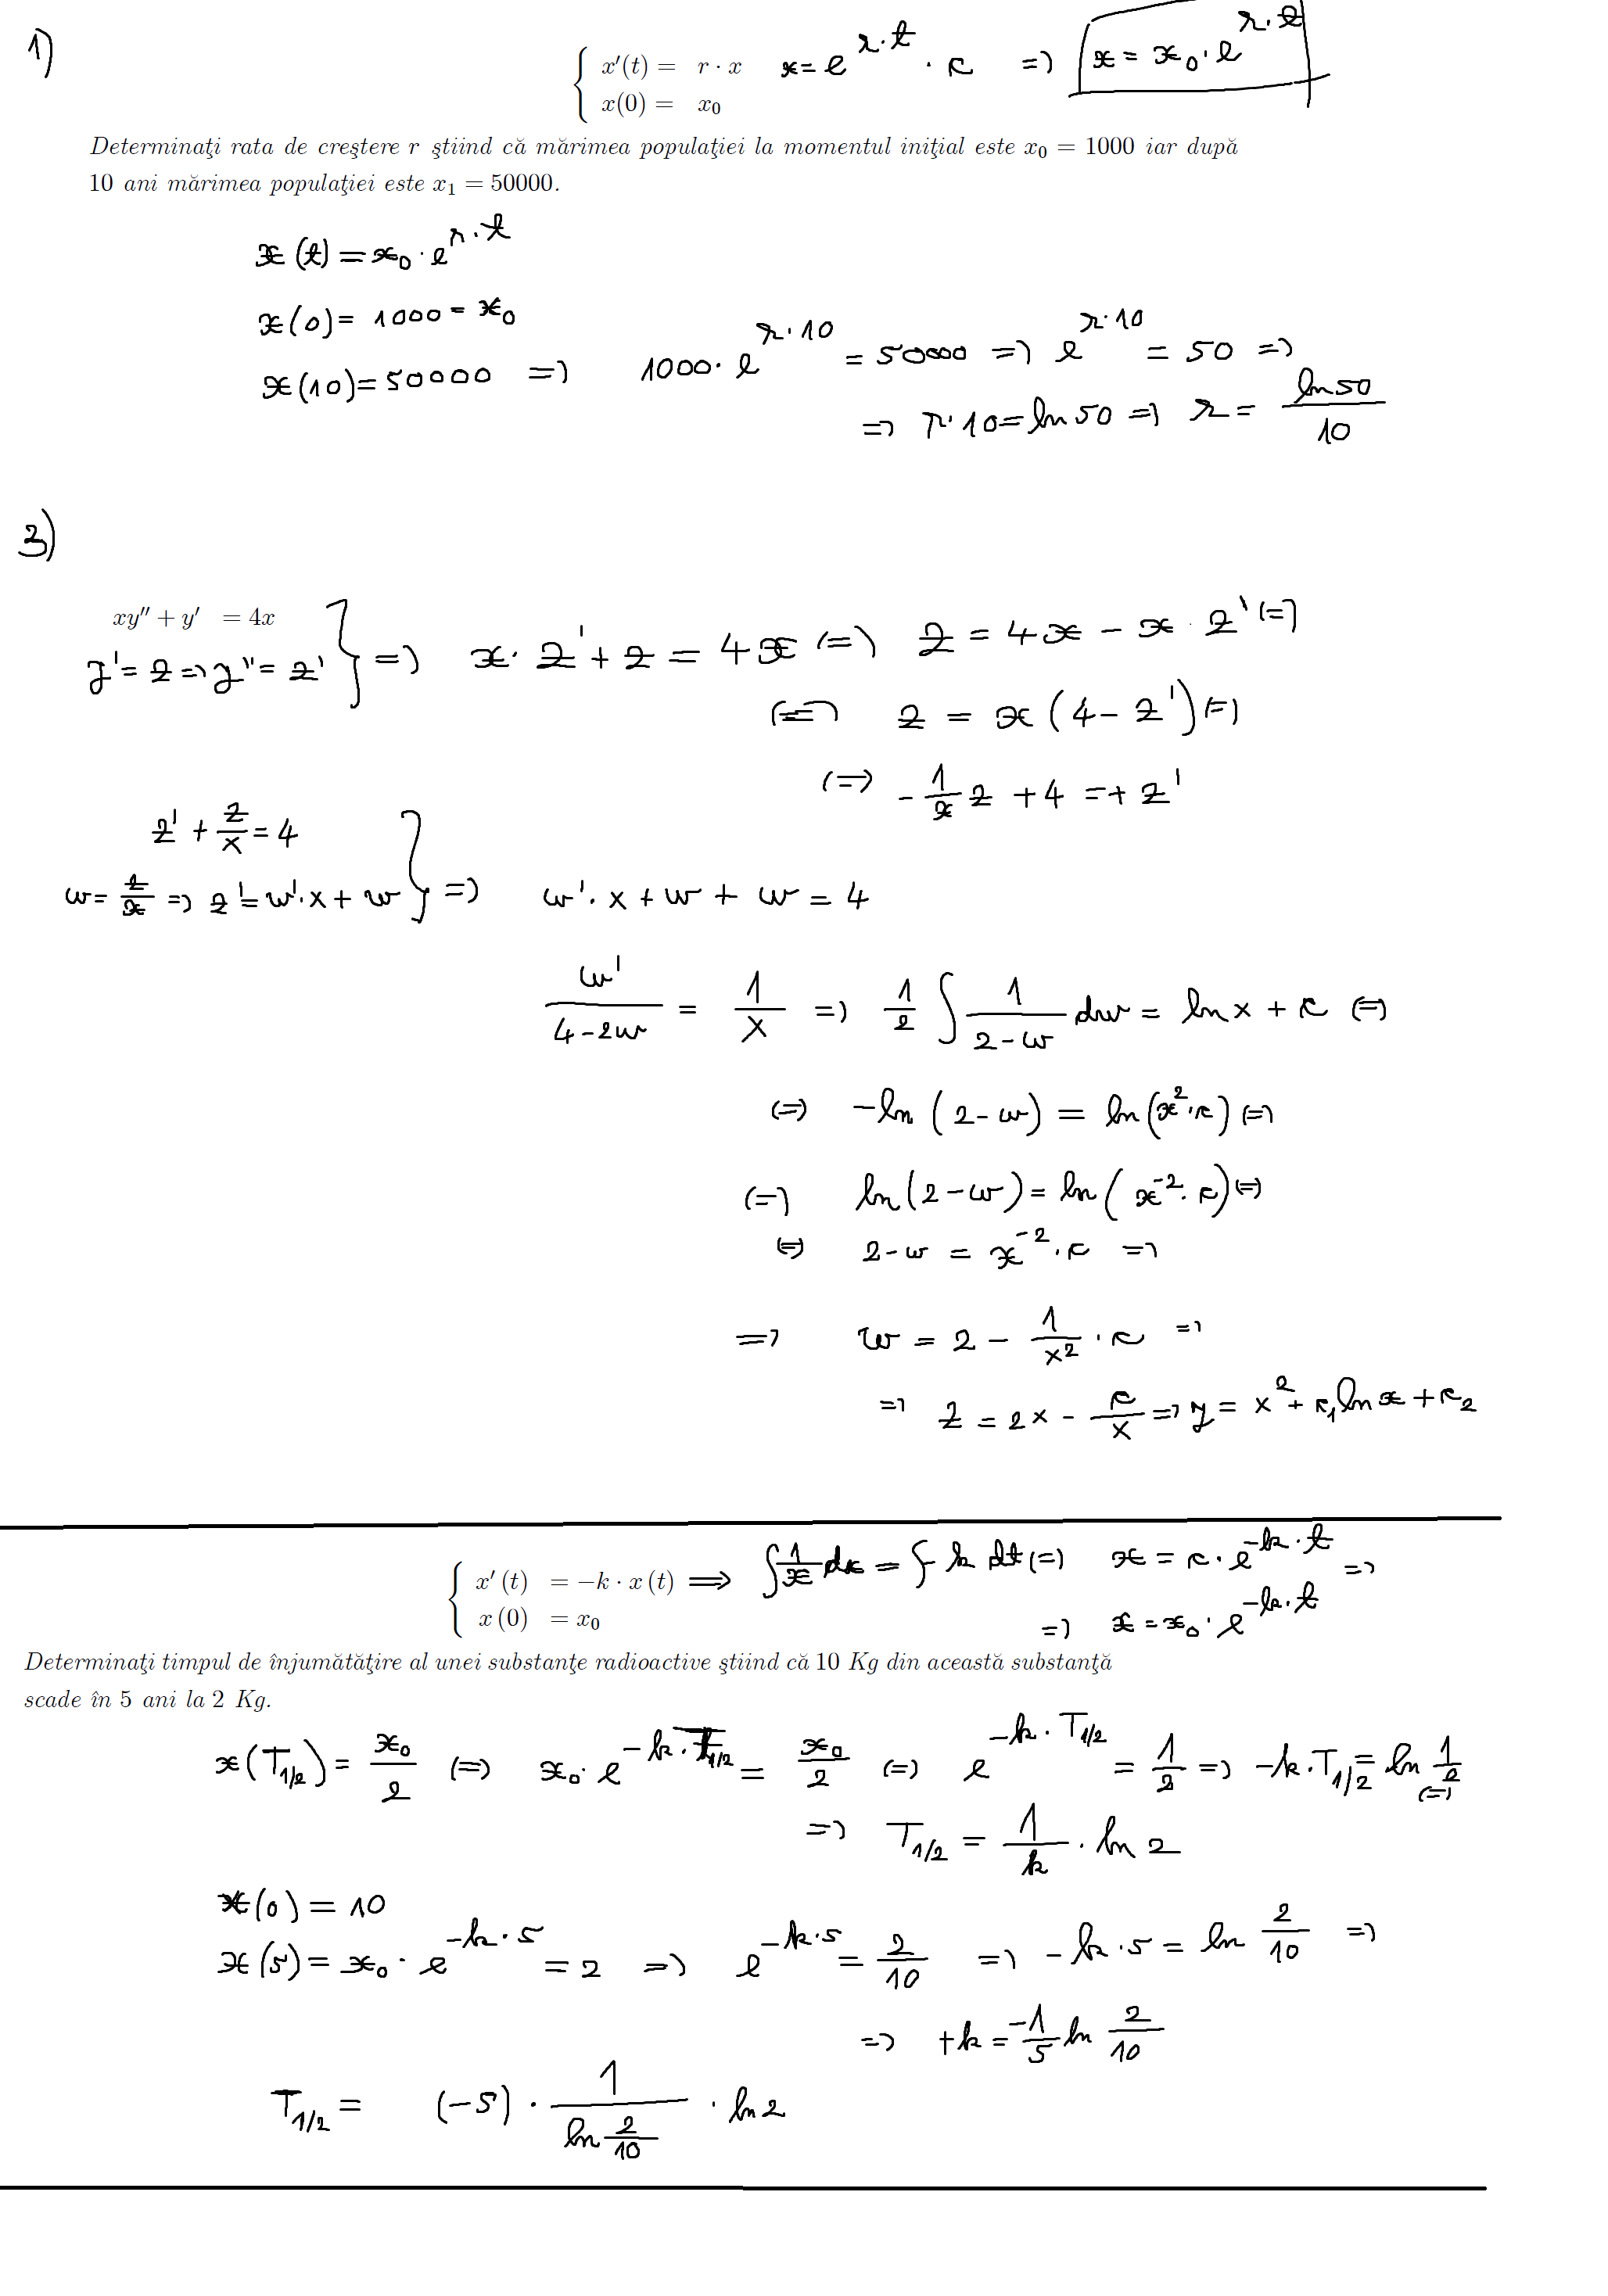 1)
{ x'(t) = r · x   x = e^{r·t} · c => x = x₀ · e^{r·t}
x(0) = x₀
Determinaţi rata de creştere r ştiind că mărimea populaţiei la momentul iniţial este x₀ = 1000 iar după
10 ani mărimea populaţiei este x₁ = 50000.
x(t) = x₀ · e^{r·t}
x(0) = 1000 = x₀
x(10) = 50000 => 1000 · e^{r·10} = 50000 => e^{r·10} = 50 =>
=> r·10 = ln 50 => r = ln 50 / 10
2)
xy'' + y' = 4x
y' = z => y'' = z' } => x · z' + z = 4x (=) z = 4x - x · z' (=)
(=) z = x(4 - z') (=)
(=) - 1/x z + 4 = + z'
z' + z/x = 4
w = z/x => z' = w'·x + w } => w' · x + w + w = 4
w' / (4 - 2w) = 1/x => 1/2 ∫ 1/(2 - w) dw = ln x + c (=)
(=) -ln(2 - w) = ln(x² · c) (=)
(=) ln(2 - w) = ln(x⁻² · c) (=)
(=) 2 - w = x⁻² · c =>
=> w = 2 - 1/x² · c =>
=> z = 2x - c/x => y = x² + c₁ ln x + c₂
{ x'(t) = -k · x(t) => ∫ 1/x dx = ∫ - k dt (=) x = c · e^{-k·t} =>
x(0) = x₀ => x = x₀ · e^{-k·t}
Determinaţi timpul de înjumătăţire al unei substanţe radioactive ştiind că 10 Kg din această substanţă
scade în 5 ani la 2 Kg.
x(T_{1/2}) = x₀/2 (=) x₀ · e^{-k·T_{1/2}} = x₀/2 (=) e^{-k·T_{1/2}} = 1/2 => -k·T_{1/2} = ln 1/2 (=)
=> T_{1/2} = 1/k · ln 2
x(0) = 10
x(5) = x₀ · e^{-k·5} = 2 => e^{-k·5} = 2/10 => -k·5 = ln 2/10 =>
=> +k = -1/5 ln 2/10
T_{1/2} = (-5) · 1/(ln 2/10) · ln 2